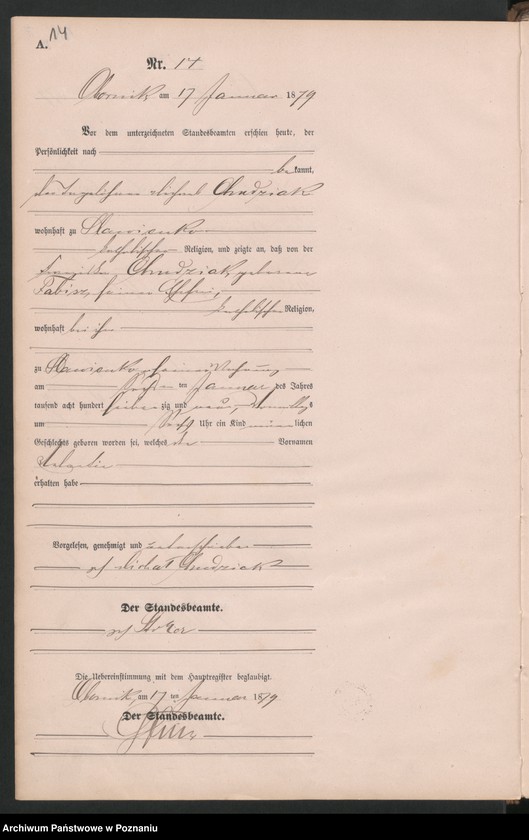 A. 14
Nr. 14
Obornik am 17 Januar 1879
Vor dem unterzeichneten Standesbeamten erschien heute, der
Persönlichkeit nach
bekannt,
der Tagelöhner Michael Chudziak
wohnhaft zu Slawienko
katholischer Religion, und zeigte an, daß von der
Chudziak geborene
Tabisz, seiner Ehefrau,
katholischer Religion,
wohnhaft bei ihm
zu Slawienko, seiner Wohnung
am ten Januar des Jahres
tausend acht hundert siebenzig und neun, Vormittags
um Uhr ein Kind männlichen
Geschlechts geboren worden sei, welches den Vornamen
erhalten habe
Vorgelesen, genehmigt und unterschrieben
Michał Chudziak
Der Standesbeamte.
Die Uebereinstimmung mit dem Hauptregister beglaubigt.
Obornik am 17 ten Januar 1879
Der Standesbeamte.
Archiwum Państwowe w Poznaniu